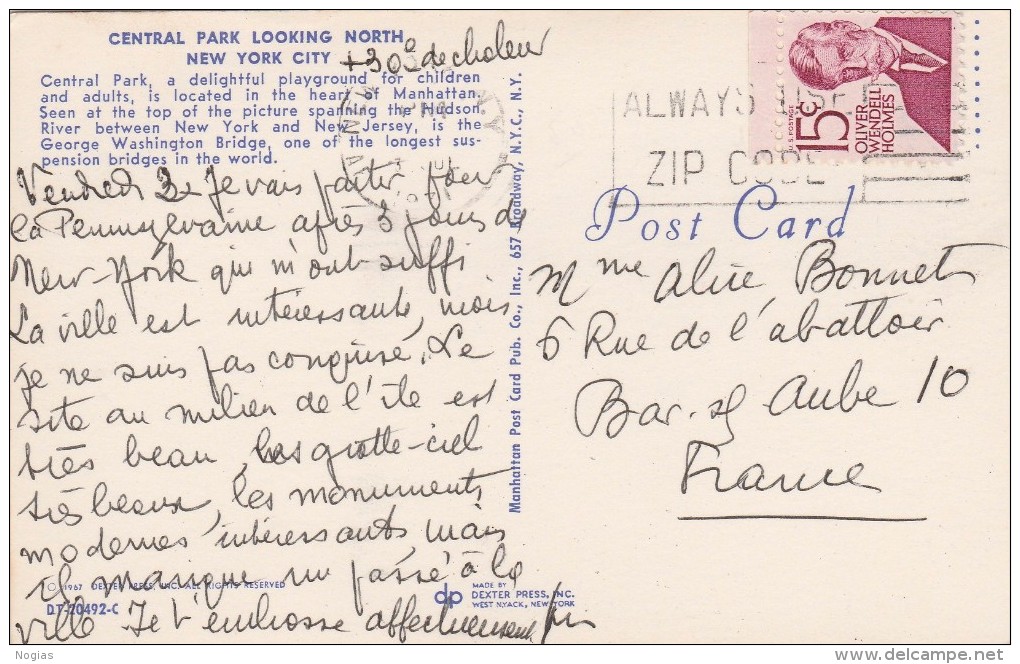 CENTRAL PARK LOOKING NORTH
NEW YORK CITY
+30° de chaleur
Central Park, a delightful playground for children
and adults, is located in the heart of Manhattan.
Seen at the top of the picture spanning the Hudson
River between New York and New Jersey, is the
George Washington Bridge, one of the longest sus-
pension bridges in the world.
Vendredi Je vais partir pour
la Pennsylvanie après 3 jours de
New-York qui m'ont suffi.
La ville est intéressante, mais
je ne suis pas conquise. Le
site au milieu de l'île est
très beau, les gratte-ciel
très beaux, les monuments
modernes intéressants mais
il manque un passé à la
ville Je t'embrasse affectueusement
© 1967 DEXTER PRESS, INC. ALL RIGHTS RESERVED
DT-20492-C
dp
MADE BY
DEXTER PRESS, INC.
WEST NYACK, NEW YORK
Manhattan Post Card Pub. Co., Inc., 657 Broadway, N.Y.C., N.Y.
ALWAYS USE
ZIP CODE
U.S. POSTAGE
15¢
OLIVER
WENDELL
HOLMES
Post Card
Mme Alice Bonnet
6 Rue de l'abattoir
Bar. s/ Aube 10
France
Nogias
delcampe.net